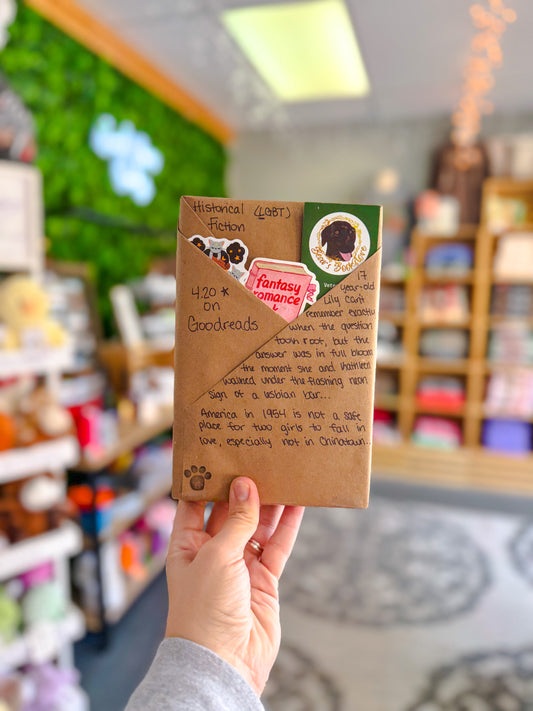 Historical (LGBT)
Fiction
4.20 *
on
Goodreads
fantasy
romance
Bear's Bookdove
17
year-old
Lily can't
remember exactly
when the question
took root, but the
answer was in full bloom
the moment she and Kathleen
walked under the flashing neon
sign of a lesbian bar...
America in 1954 is not a safe
place for two girls to fall in
love, especially not in Chinatown...